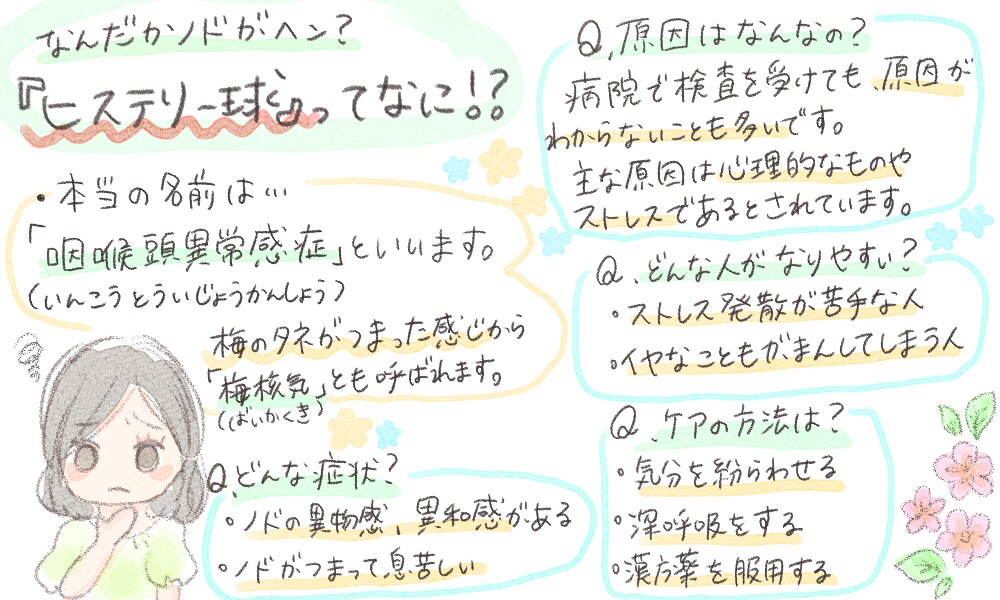 なんだかノドがヘン?
『ヒステリー球』ってなに!?
・本当の名前は…
「咽喉頭異常感症」といいます。
(いんこうとういじょうかんしょう)
梅のタネがつまった感じから
「梅核気」とも呼ばれます。
(ばいかくき)
Q.どんな症状?
・ノドの異物感、異和感がある
・ノドがつまって息苦しい
Q.原因はなんなの?
病院で検査を受けても、原因が
わからないことも多いです。
主な原因は心理的なものや
ストレスであるとされています。
Q.どんな人がなりやすい?
・ストレス発散が苦手な人
・イヤなこともがまんしてしまう人
Q.ケアの方法は?
・気分を紛らわせる
・深呼吸をする
・漢方薬を服用する